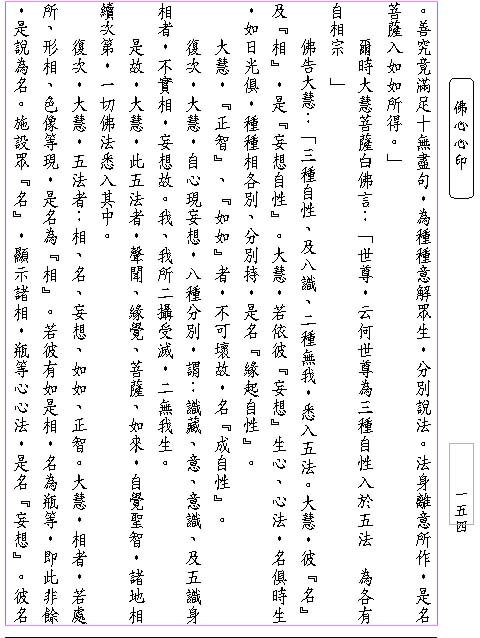 佛心心印
。善究竟滿足十無盡句，為種種意解眾生，分別說法。法身離意所作，是名
菩薩入如如所得。」
爾時大慧菩薩白佛言：「世尊，云何世尊為三種自性入於五法　為各有
自相宗　」
佛告大慧：「三種自性、及八識、二種無我，悉入五法。大慧，彼『名』
及『相』，是『妄想自性』。大慧，若依彼『妄想』生心、心法，名俱時生
，如日光俱，種種相各別、分別持，是名『緣起自性』。
大慧，『正智』、『如如』者，不可壞故，名『成自性』。
復次，大慧，自心現妄想，八種分別，謂：識藏、意、意識、及五識身
相者，不實相，妄想故。我、我所二攝受滅，二無我生。
是故，大慧，此五法者，聲聞、緣覺、菩薩、如來，自覺聖智，諸地相
續次第，一切佛法悉入其中。
復次，大慧，五法者：相、名、妄想、如如、正智。大慧，相者，若處
所、形相、色像等現，是名為『相』。若彼有如是相，名為瓶等，即此非餘
，是說為名。施設眾『名』，顯示諸相，瓶等心心法，是名『妄想』。彼名
一五四